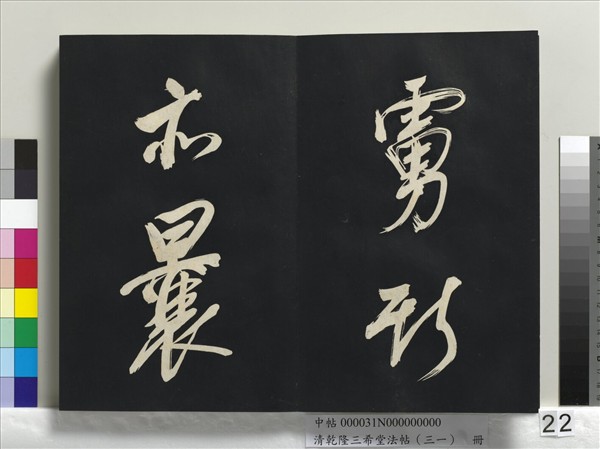 虜
亦曩
中帖 000031N000000000
清乾隆三希堂法帖（三一） 冊
22